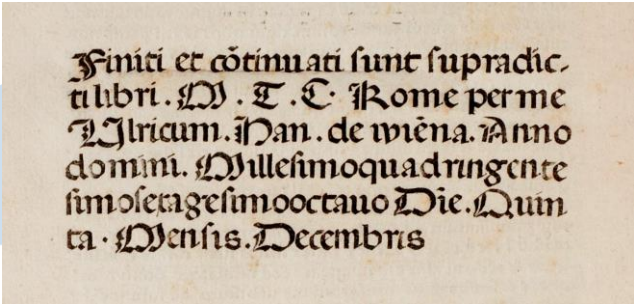 Finiti et cõtinuati sunt supradic-
ti libri . M . T . C . Rome per me
Vlricum . Han . de wiēna . Anno
domini . Millesimoquadringente
simosexagesimooctauo Die . Quin
ta . Mensis . Decembris